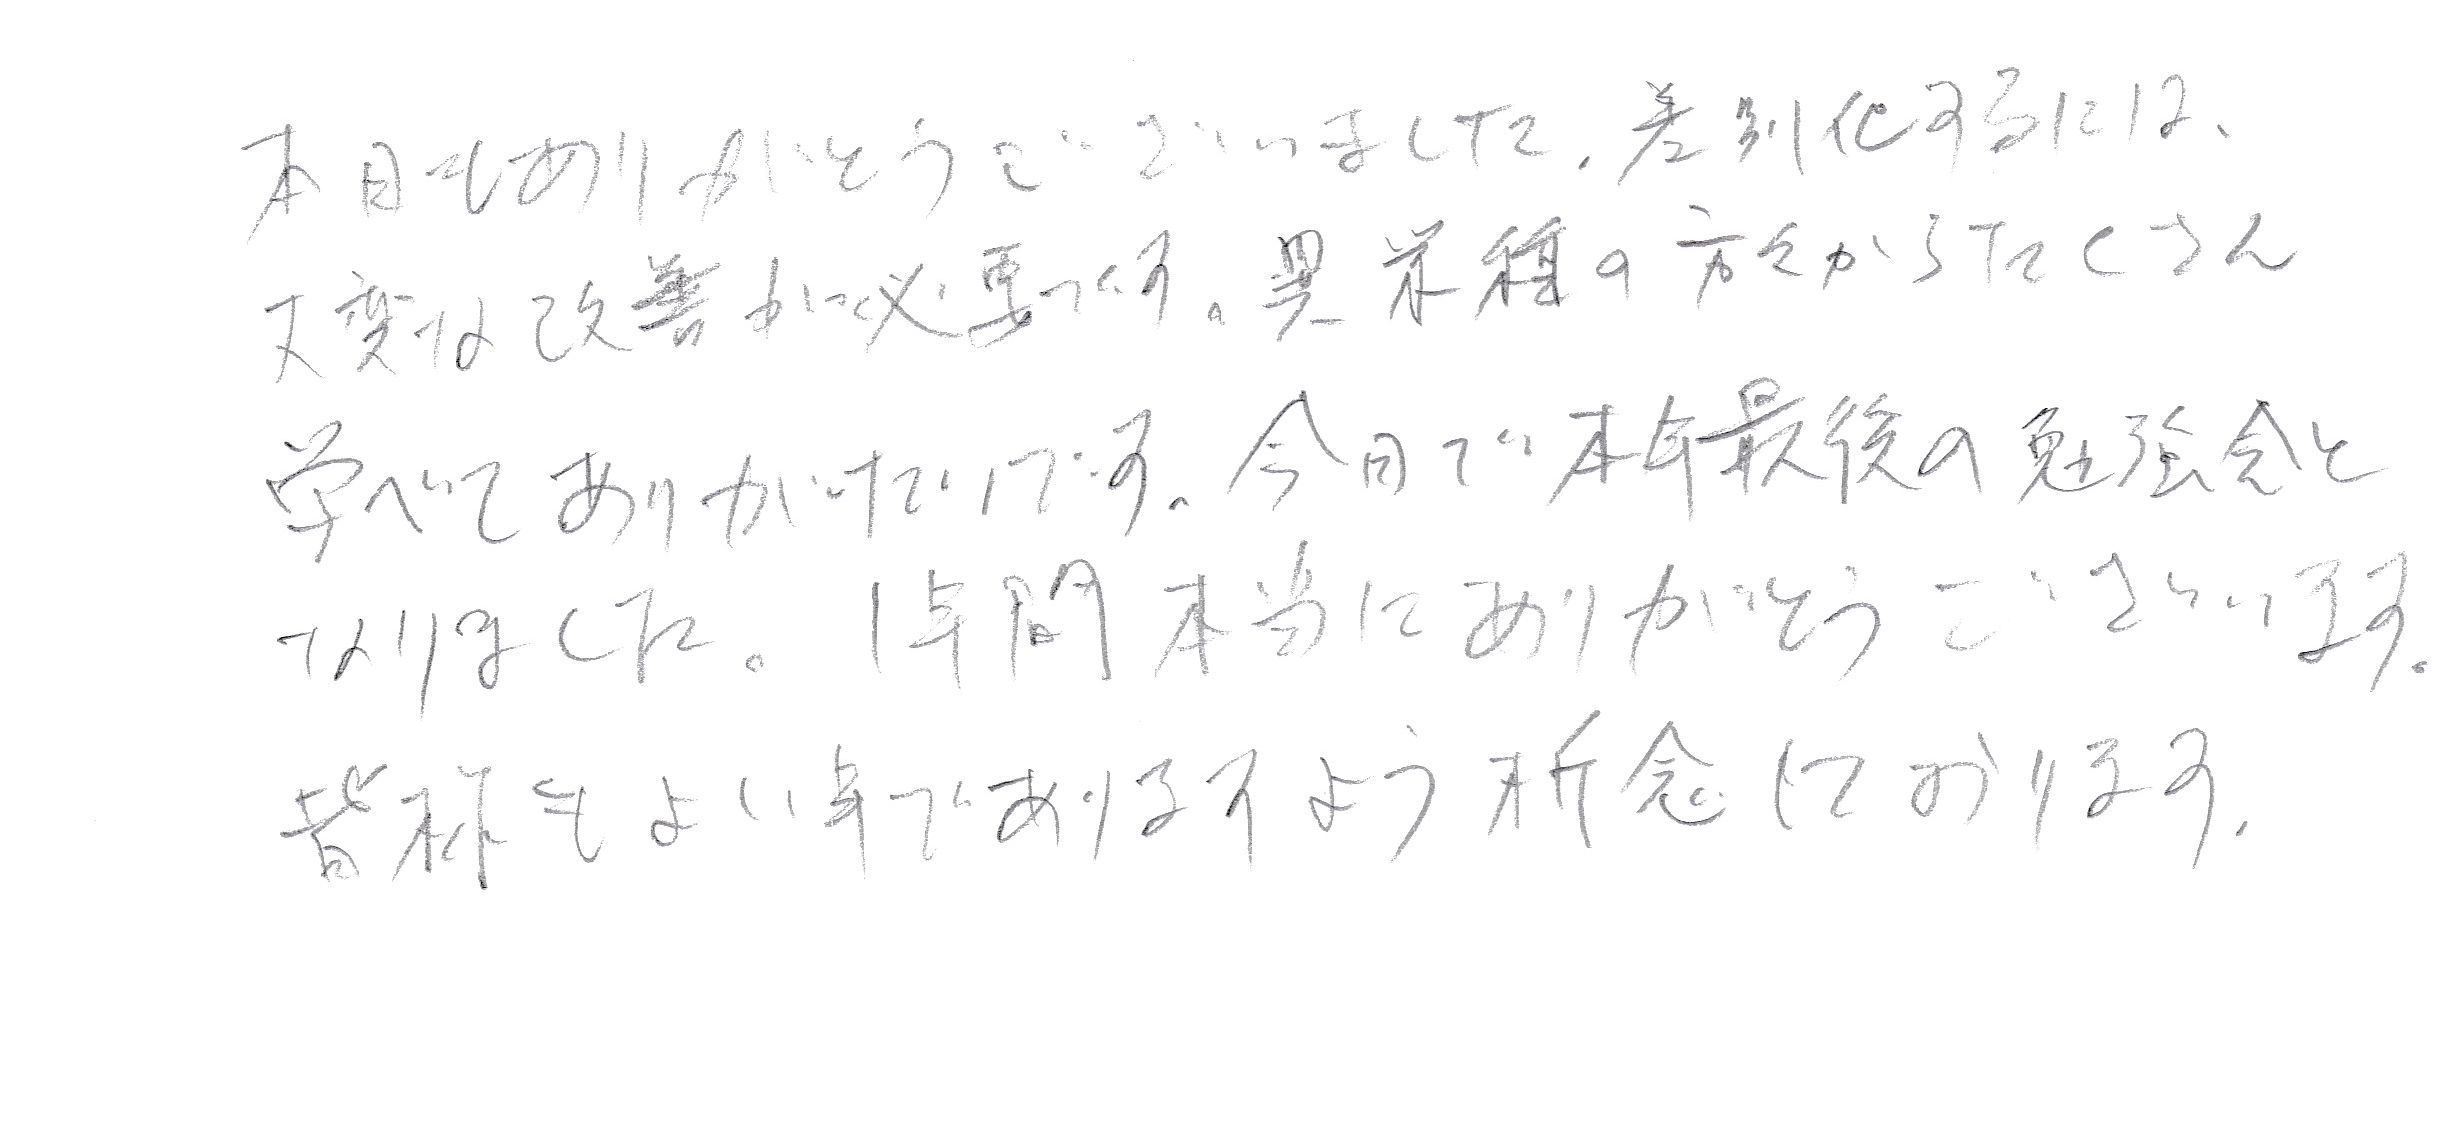 本日もありがとうございました。差別化するには、
大変な改善が必要です。異業種の方々からたくさん
学べてありがたいです。今日で本年最後の勉強会と
なりました。1年間本当にありがとうございます。
皆様もよい年でありますよう祈念しております。